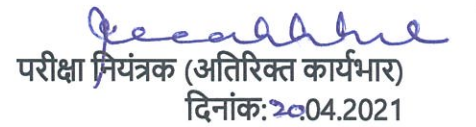 परीक्षा नियंत्रक (अतिरिक्त कार्यभार)
दिनांक:20.04.2021